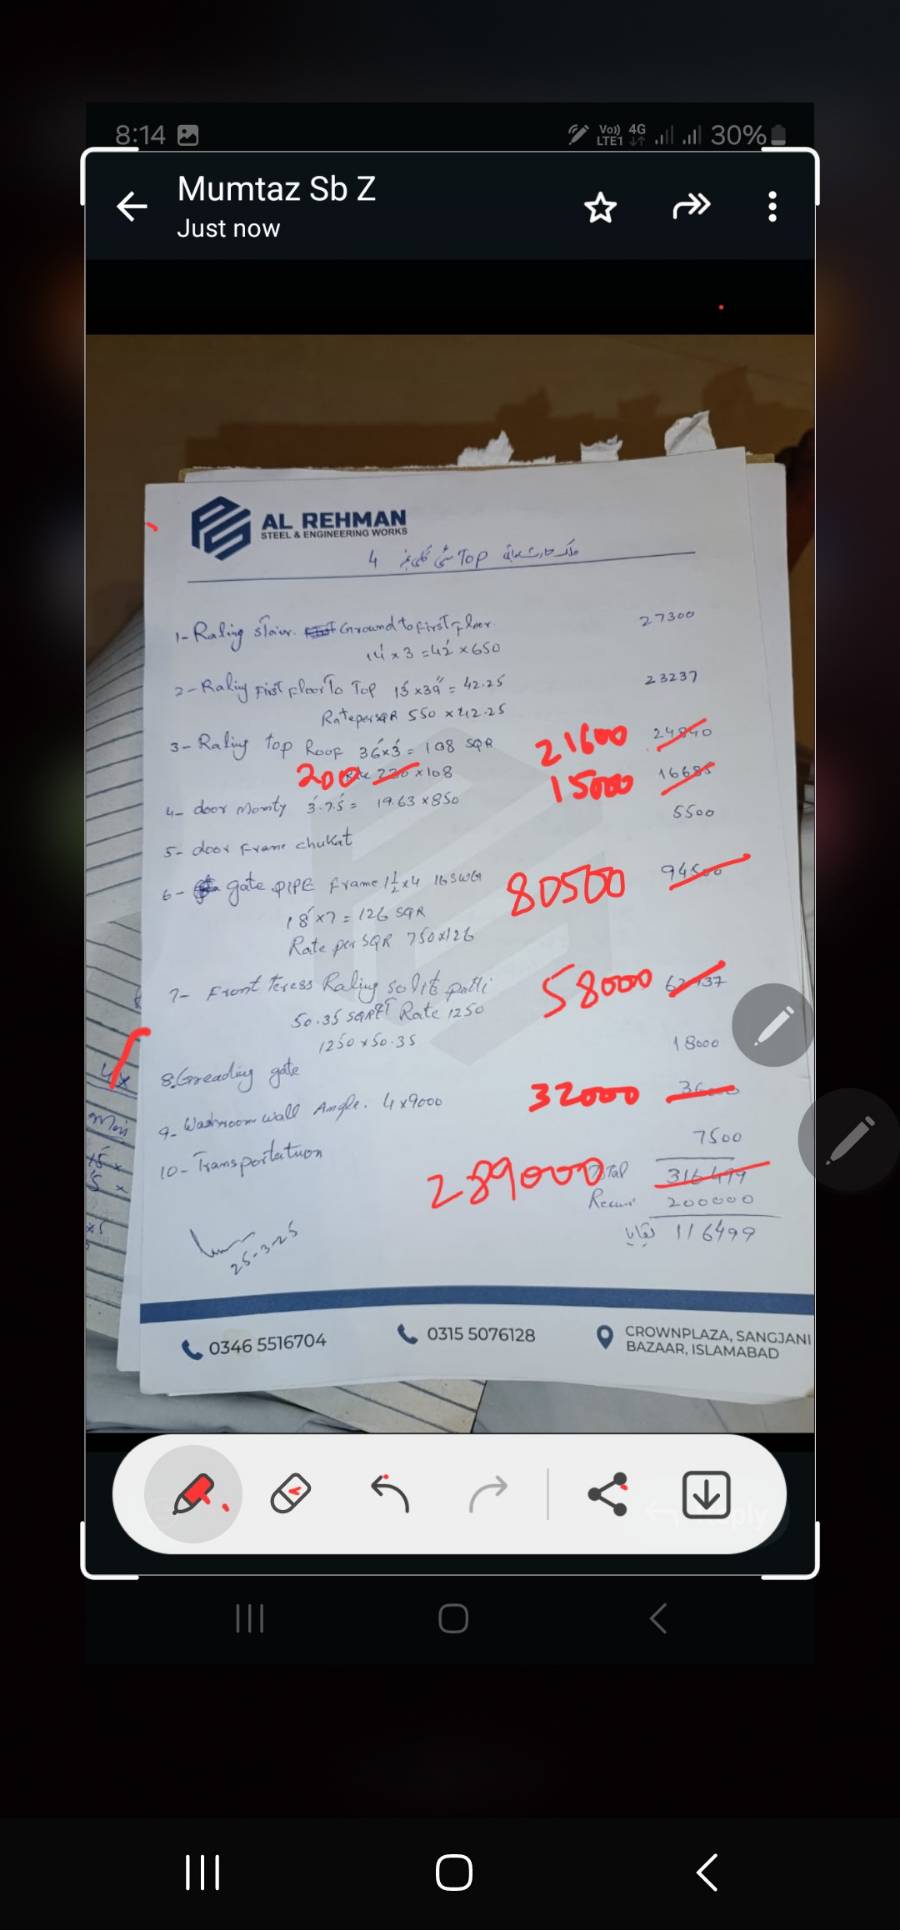 8:14 Vo)) 4G LTE1 30%
Mumtaz Sb Z
Just now
AL REHMAN
STEEL & ENGINEERING WORKS
Top 4
1- Raling stair. Ground to first floor. 27300
14' x 3 = 42' x 650
2- Raling First floor To Top 13' x 39" = 42.25 23237
Rate per SQR 550 x 42.25
3- Raling top Roof 36' x 3' = 108 SQR 21600 24840
200 220 x 108
15000 16685
4- door Momty 3' 7.5' = 19.63 x 850
5- door Frame chukat 5500
6- gate PIPE Frame 1½ x 4 16 SWG 80500 94500
18' x 7 = 126 SQR
Rate per SQR 750 x 126
7- Front Teress Raling solit patti 58000
50.35 SQRFT Rate 1250
1250 x 50.35
8. Greading gate 18000
9- Washroom wall Angle. 4 x 9000 32000 36000
10- Transportation 7500
289000 Total 316499
200000
بقایا 116499
25-3-25
0346 5516704
0315 5076128
CROWNPLAZA, SANGJANI
BAZAAR, ISLAMABAD